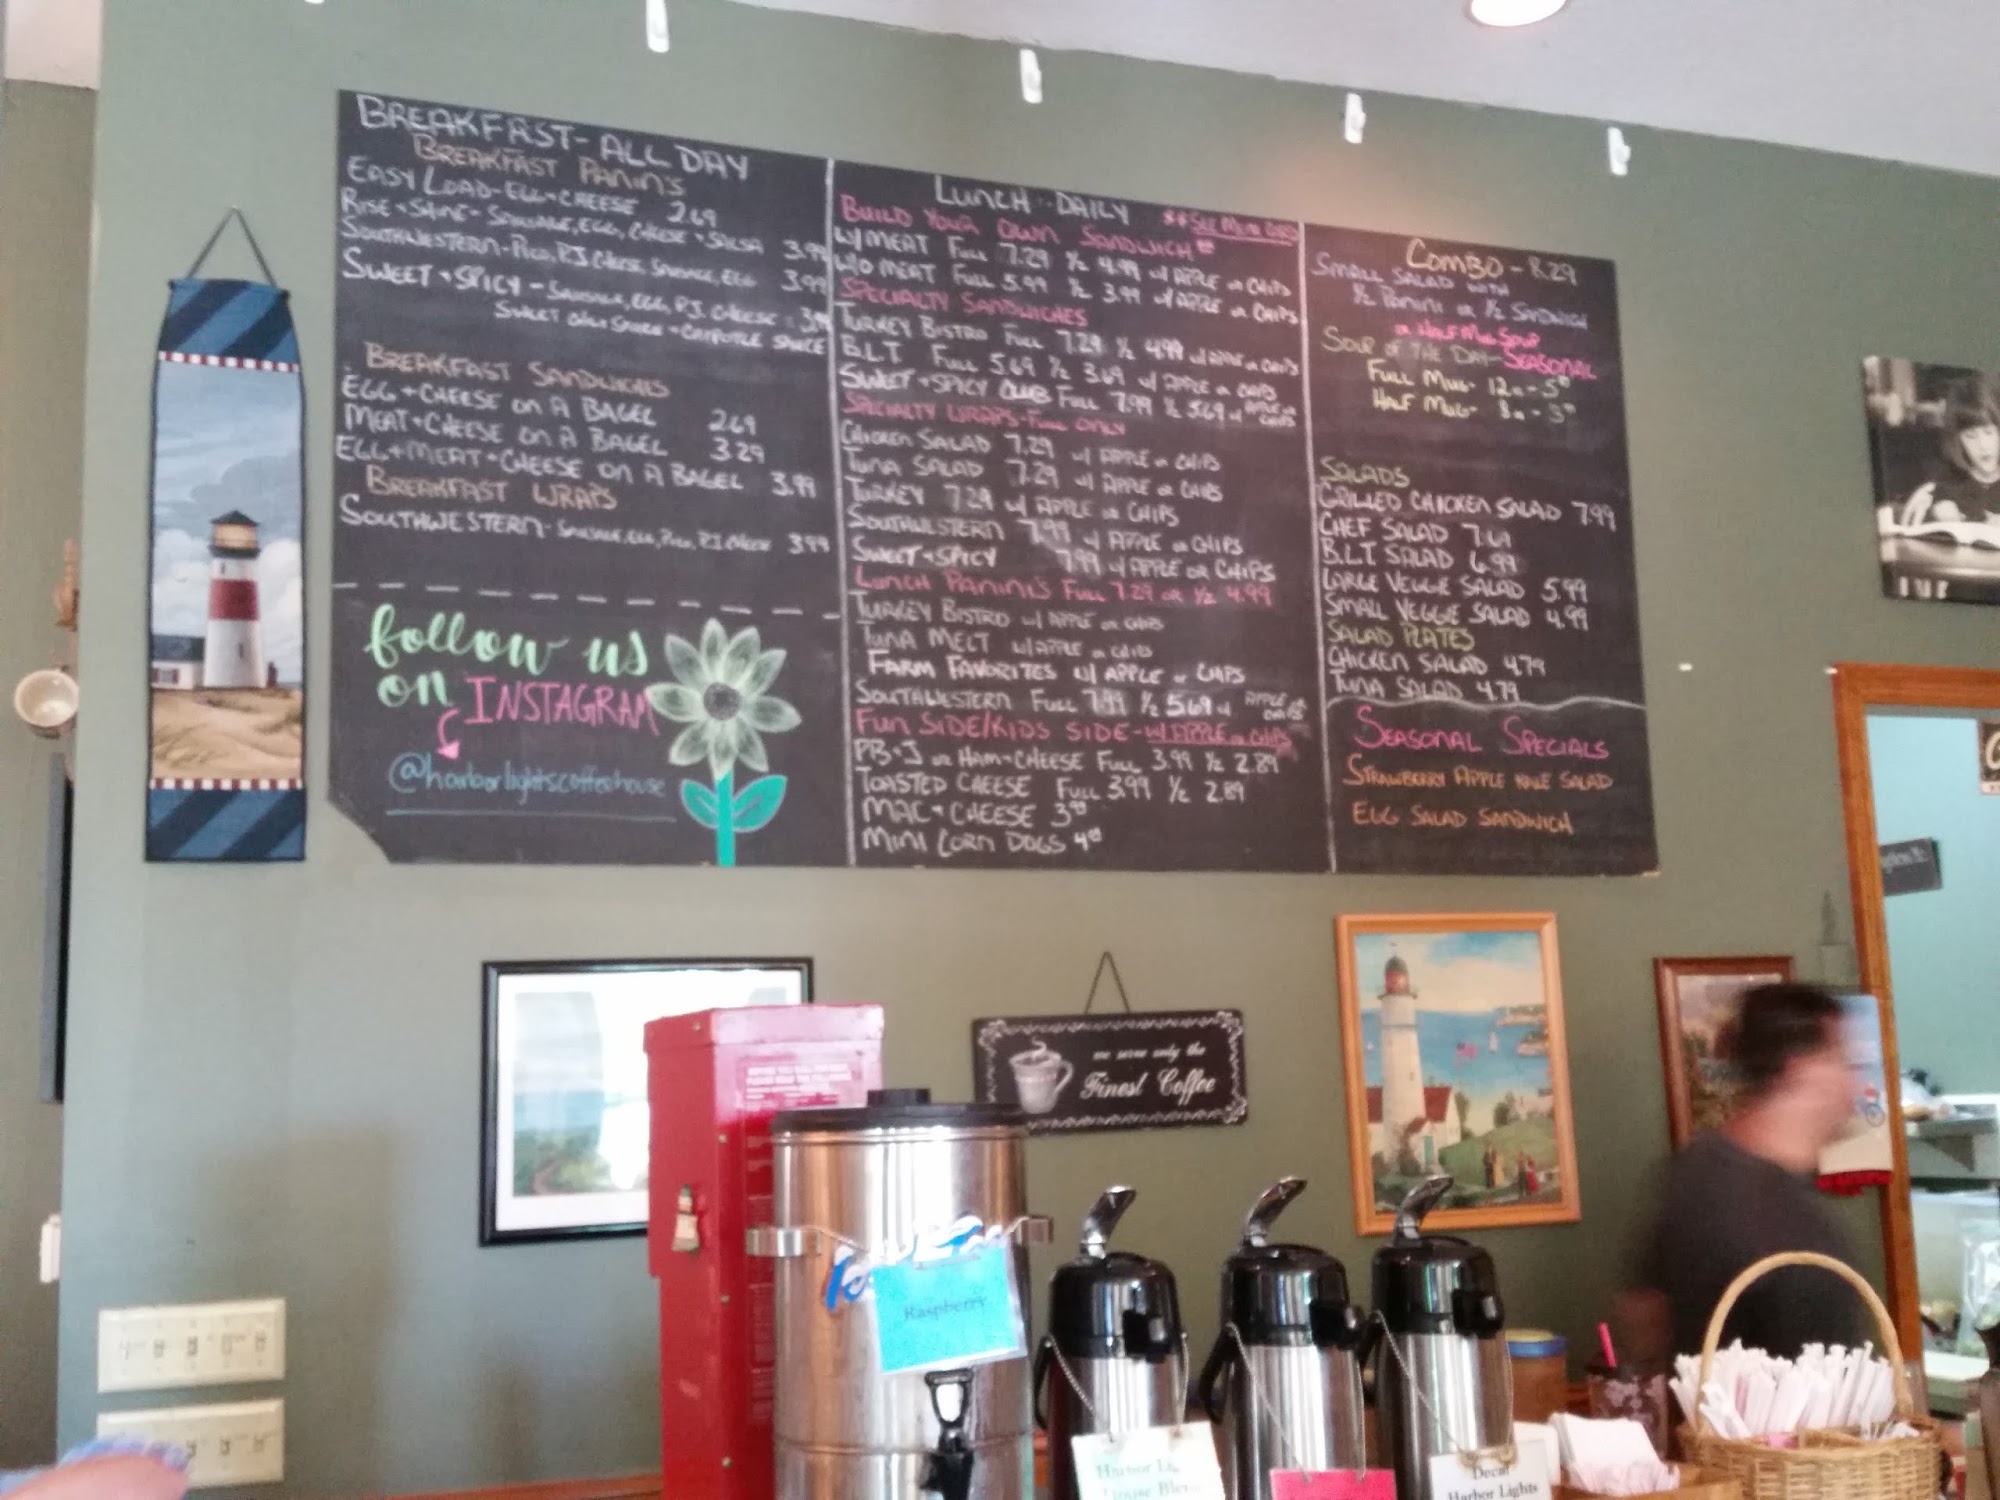 BREAKFAST - ALL DAY
BREAKFAST PANINI'S
EASY LOAD - EGG + CHEESE 2.69
RISE + SHINE - SAUSAGE, EGG, CHEESE + SALSA 3.99
SOUTHWESTERN - PICO, P.J. CHEESE, SAUSAGE, EGG 3.99
SWEET + SPICY - SAUSAGE, EGG, P.J. CHEESE 3.99
SWEET CHILI SAUCE + CHIPOTLE SAUCE
BREAKFAST SANDWICHES
EGG + CHEESE ON A BAGEL 2.69
MEAT + CHEESE ON A BAGEL 3.29
EGG + MEAT + CHEESE ON A BAGEL 3.99
BREAKFAST WRAPS
SOUTHWESTERN - SAUSAGE, EGG, PICO, P.J. CHEESE 3.99
follow us
on INSTAGRAM
@harborlightscoffeehouse
LUNCH - DAILY
BUILD YOUR OWN SANDWICH **
**SEE MENU
W/ MEAT FULL 7.29 ½ 4.99 w/ APPLE or CHIPS
W/O MEAT FULL 5.99 ½ 3.99 w/ APPLE or CHIPS
SPECIALTY SANDWICHES
TURKEY BISTRO FULL 7.29 ½ 4.99 w/ APPLE or CHIPS
B.L.T FULL 5.69 ½ 3.69 w/ APPLE or CHIPS
SWEET + SPICY CLUB FULL 7.99 ½ 5.69 w/ APPLE or CHIPS
SPECIALTY WRAPS - FULL ONLY
CHICKEN SALAD 7.29 w/ APPLE or CHIPS
TUNA SALAD 7.29 w/ APPLE or CHIPS
TURKEY 7.29 w/ APPLE or CHIPS
SOUTHWESTERN 7.99 w/ APPLE or CHIPS
SWEET + SPICY 7.99 w/ APPLE OR CHIPS
LUNCH PANINI'S FULL 7.29 OR ½ 4.99
TURKEY BISTRO w/ APPLE or CHIPS
TUNA MELT w/ APPLE or CHIPS
FARM FAVORITES w/ APPLE or CHIPS
SOUTHWESTERN FULL 7.99 ½ 5.69 w/ APPLE or CHIPS
FUN SIDE/KIDS SIDE - w/ APPLE or CHIPS
PB + J or HAM + CHEESE FULL 3.99 ½ 2.89
TOASTED CHEESE FULL 3.99 ½ 2.89
MAC + CHEESE 3
MINI CORN DOGS 4
COMBO - 8.29
SMALL SALAD WITH
½ PANINI or ½ SANDWICH
or HALF MUG SOUP
SOUP of THE DAY - SEASONAL
FULL MUG - 12oz - 5
HALF MUG - 8oz - 3
SALADS
GRILLED CHICKEN SALAD 7.99
CHEF SALAD 7.69
B.L.T SALAD 6.99
LARGE VEGGIE SALAD 5.99
SMALL VEGGIE SALAD 4.99
SALAD PLATES
CHICKEN SALAD 4.79
TUNA SALAD 4.79
SEASONAL SPECIALS
STRAWBERRY APPLE KALE SALAD
EGG SALAD SANDWICH
we serve only the
Finest Coffee
BEFORE YOU CALL FOR HELP,
PLEASE READ THE FOLLOWING
Raspberry
Harbor
House Blend
Decaf
Harbor Lights